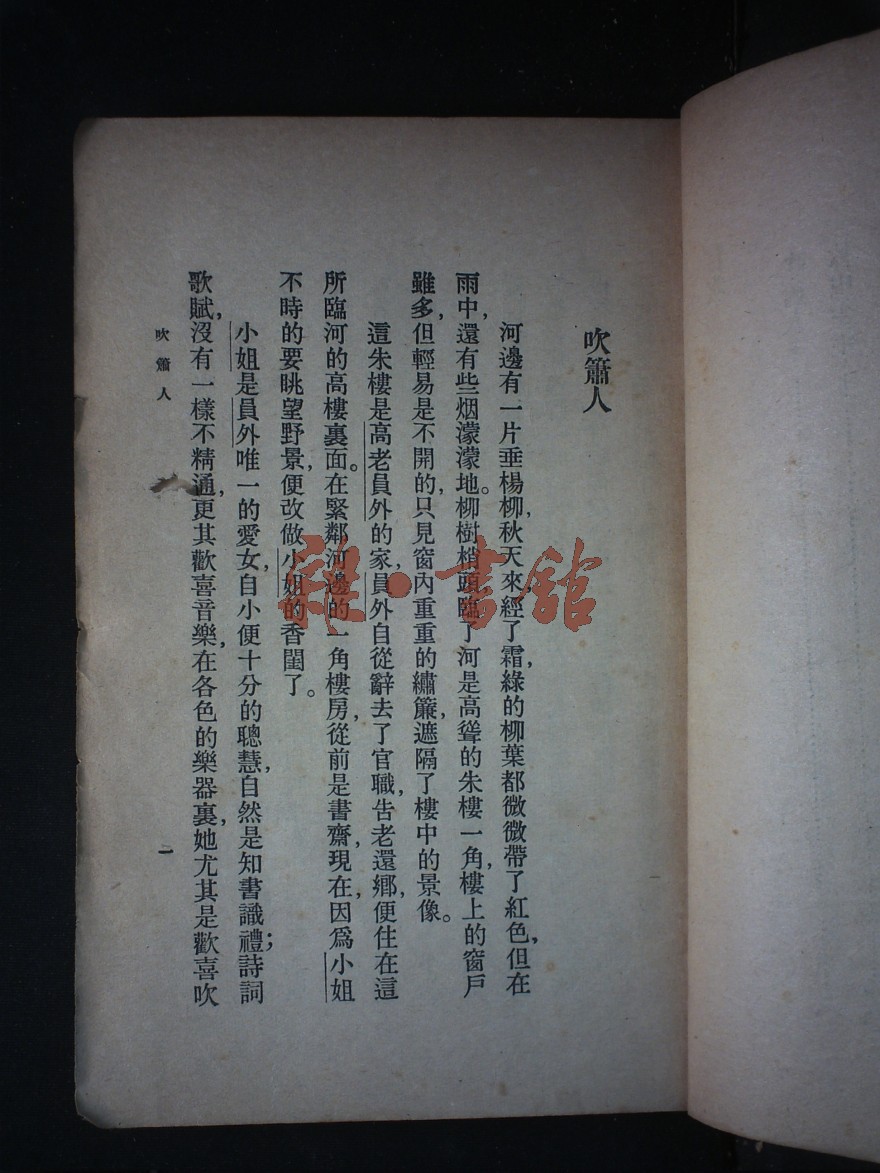 吹簫人
河邊有一片垂楊柳，秋天來，經了霜，綠的柳葉都微微帶了紅色，但在
雨中，還有些烟濛濛地。柳樹梢頭，臨了河是高聳的朱樓一角，樓上的窗戶
雖多，但輕易是不開的，只見窗內重重的繡簾，遮隔了樓中的景像。
這朱樓是高老員外的家，員外自從辭去了官職，告老還鄉，便住在這
所臨河的高樓裏面。在緊鄰河邊的一角樓房，從前是書齋，現在，因爲小姐
不時的要眺望野景，便改做小姐的香閨了。
小姐是員外唯一的愛女，自小便十分的聰慧，自然是知書識禮；詩詞
歌賦，沒有一樣不精通，更其歡喜音樂，在各色的樂器裏，她尤其是歡喜吹
吹簫人
一
雜·書館